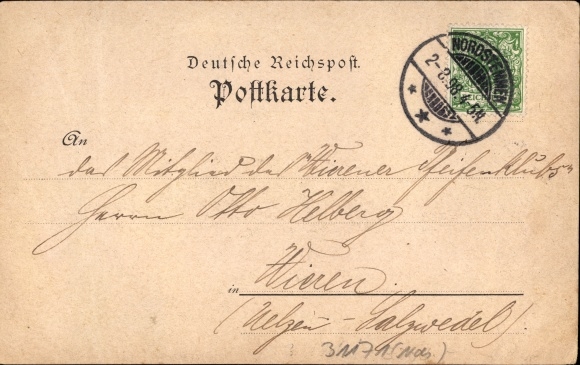 Deutsche Reichspost.
Postkarte.
NORDSTEMMEN
2-8.98. 4-5N.
An
das Mitglied des "Wierener Pfeifenklubs"
Herrn Otto Helberg
in Wieren.
(Uelzen - Salzwedel).
31171 (Nds.)